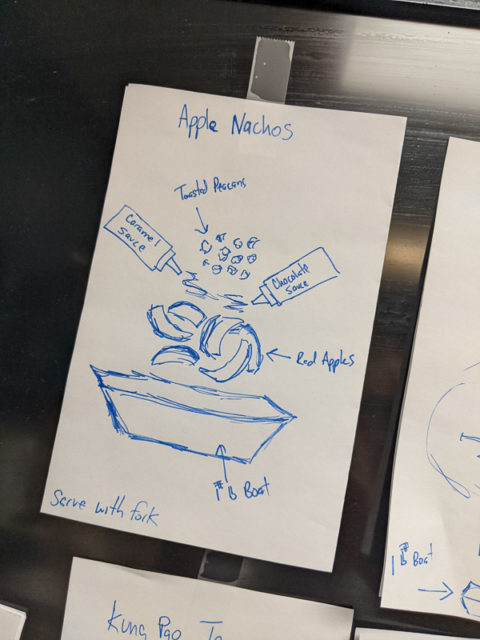 Apple Nachos
Toasted Pecans
Caramel
Sauce
Chocolate
Sauce
Red Apples
1# Boat
Serve with fork
1# Boat
Kung Pao